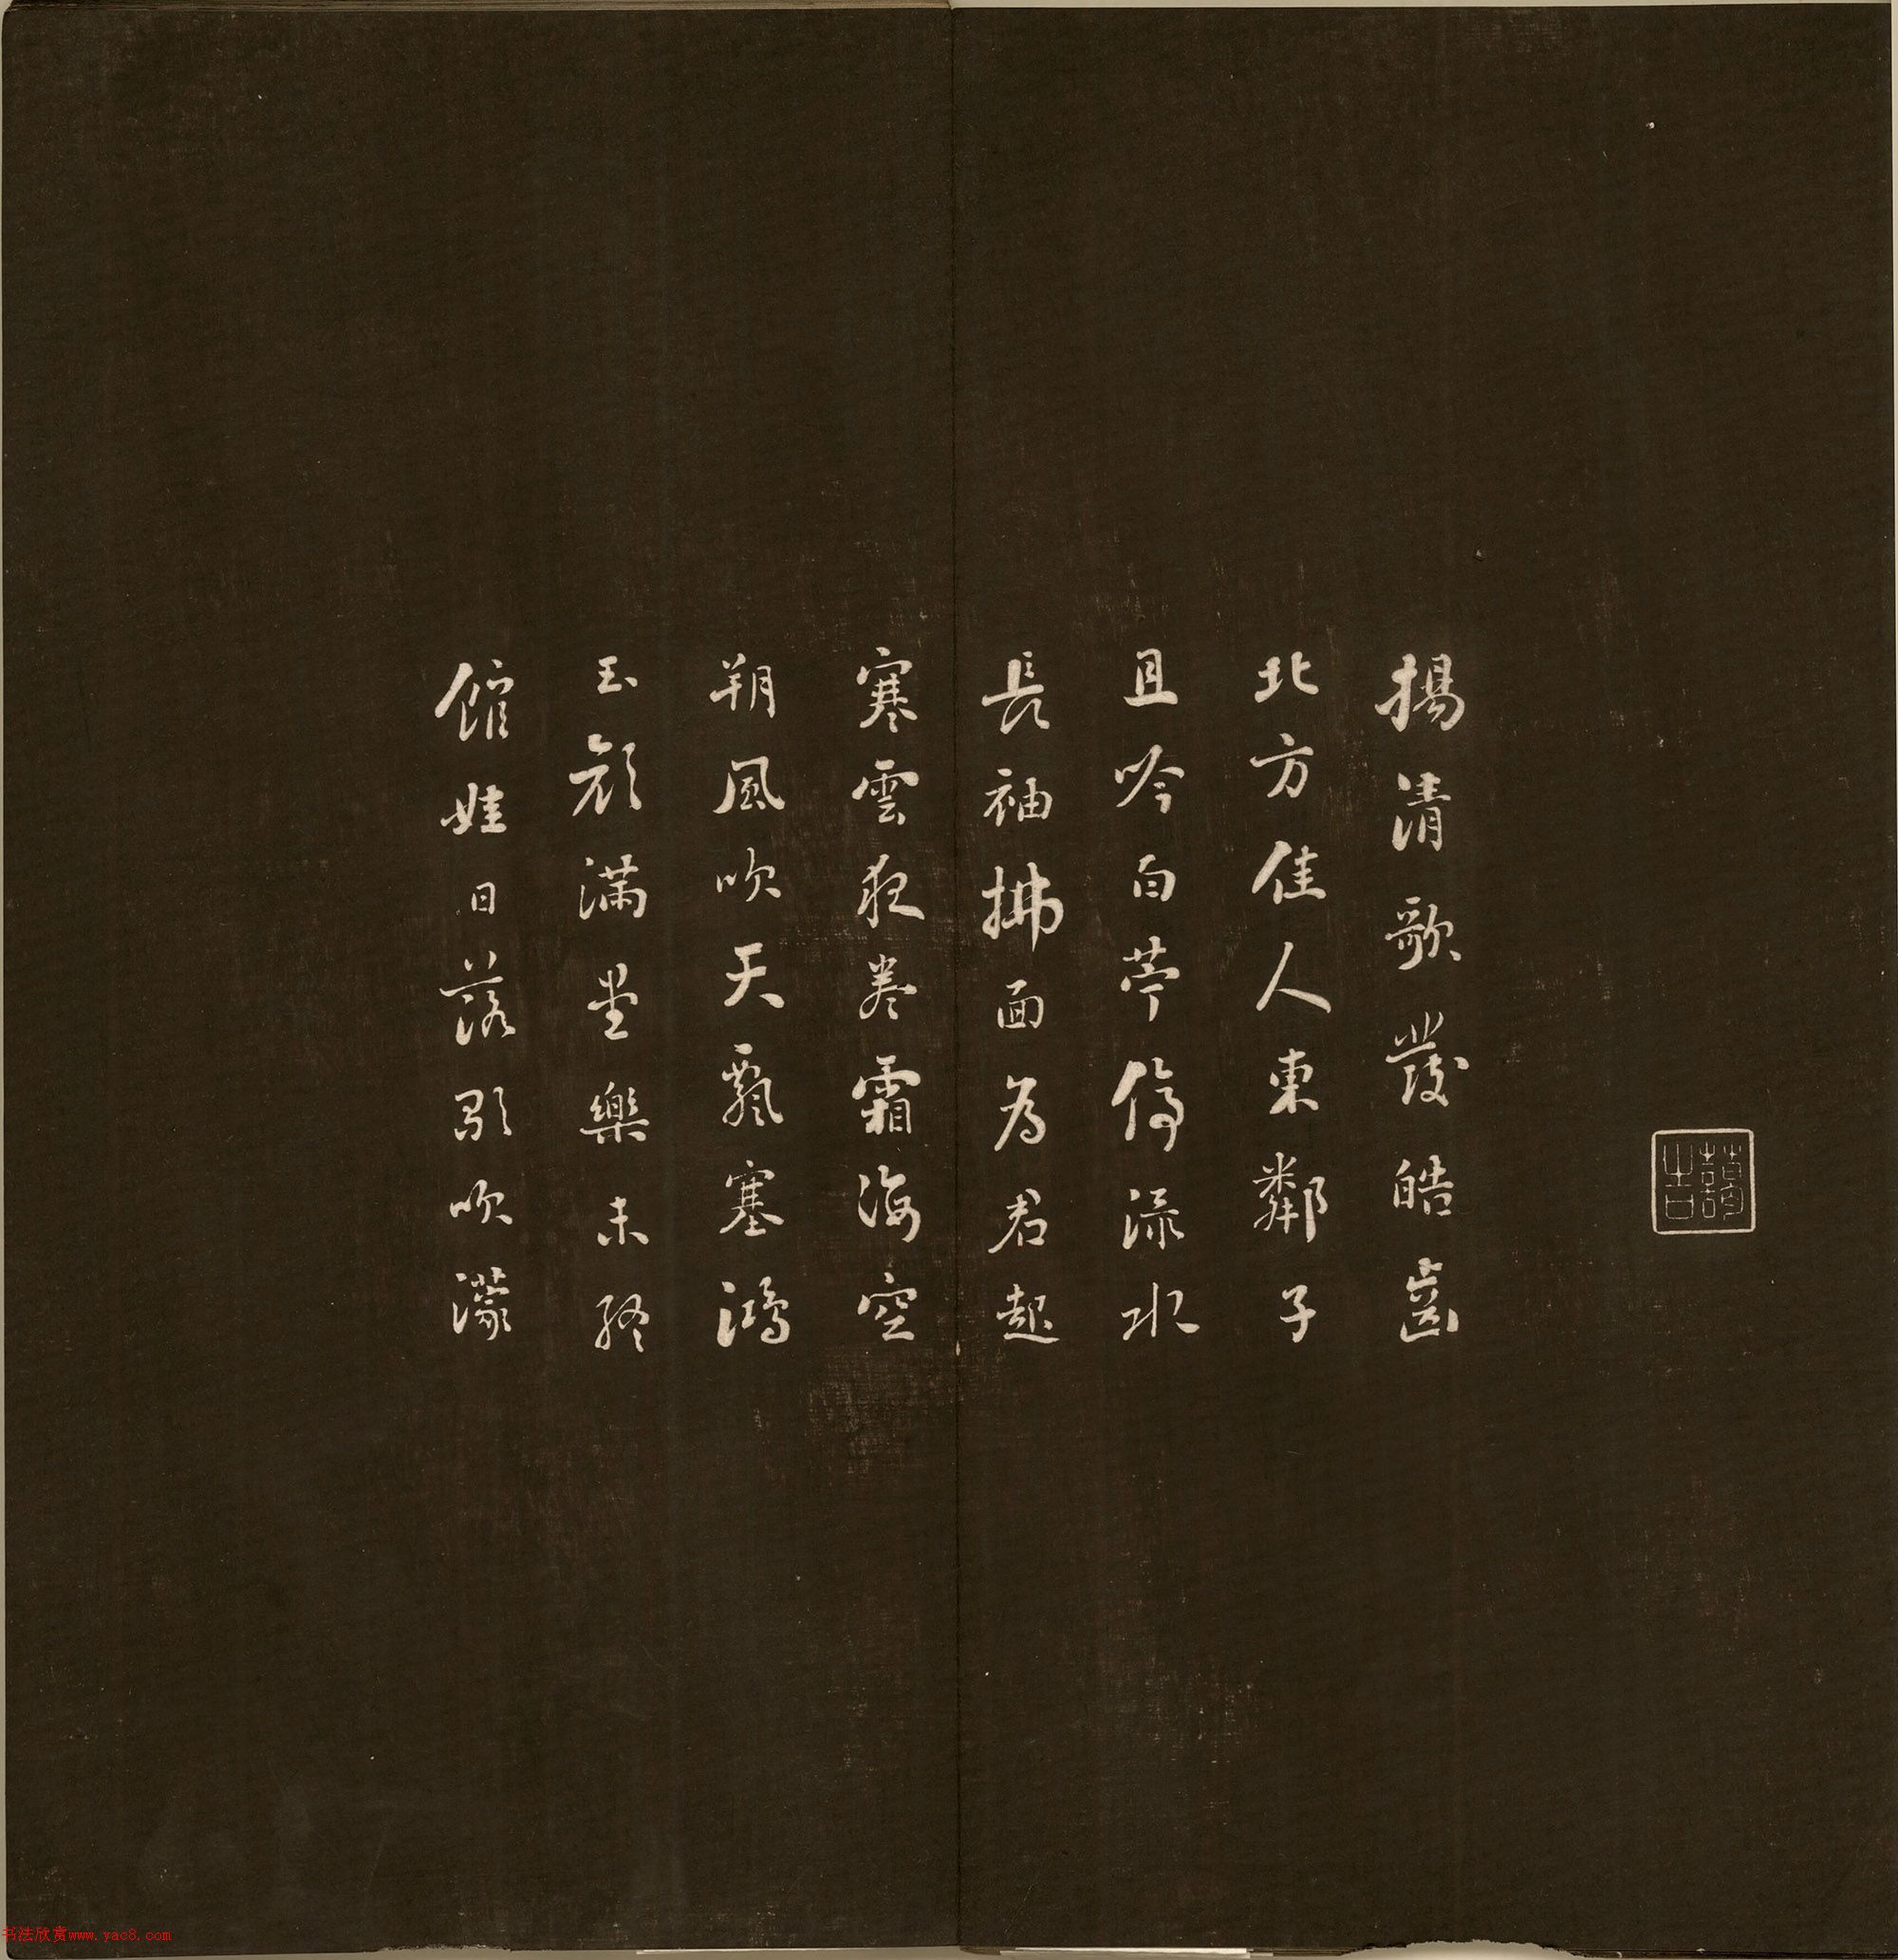 揚清歌發皓齒
北方佳人東鄰子
且吟白苧停淥水
長袖拂面為君起
寒雲夜卷霜海空
朔風吹天飄塞鴻
玉顏滿堂樂未終
館娃日落歌吹濛
书法欣赏www.yac8.com